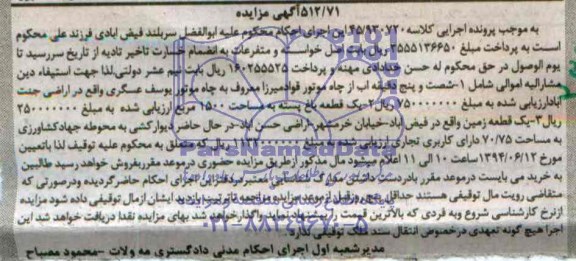 ۵۱۲/۷۱آگهی مزایده
به موجب پرونده اجرایی کلاسه ۴۵/۹۳۰۷۲۰ این اجرای احکام محکوم علیه ابوالفضل سربلند فیض ابادی فرزند علی محکوم
است به پرداخت مبلغ ۲۵۵۵۱۳۶۶۵۰ ریال بابت اصل خواسته و متفرعات به انضمام خسارت تاخیر تادیه از تاریخ سررسید تا
یوم الوصول در حق محکوم له حسن خدادادی مهنه و پرداخت ۱۶۰۲۵۵۵۲۵ ریال بابت نیم عشر دولتی.لذا جهت استیفاء دین
مشارالیه اموالی شامل ۱-شصت و پنج دقیقه اب از چاه موتور قوادمیرزا معروف به چاه موتور یوسف عسگری واقع در اراضی جنت
آبادارزیابی شده به مبلغ ۷۵۰۰۰۰۰۰۰ ریال۲-یک قطعه باغ پسته به مساحت ۱۵۰۰ مربع ارزیابی شده به مبلغ ۲۵۰۰۰۰۰۰۰
ریال۳-یک قطعه زمین واقع در فیض آباد-خیابان خرمشهر-اراضی حسن آباد-در حال حاضر دیوارکشی به محوطه جهادکشاورزی
به مساحت ۷۰/۷۵ دارای کاربری تجاری ریال که متعلق به محکوم علیه توقیف لذا باتعیین
مورخ ۱۳۹۴/۰۶/۱۲ساعت ۱۰ الی ۱۱ اعلام میشود مال مذکور ازطریق مزایده حضوری درموعد مقرربفروش خواهد رسید طالبین
به خرید می بایست درموعد مقرر بادردست داشتن شناسایی معتبرمردفتراین اجرای احکام حاضرگردیده ودرصورتی که
متقاضی رویت مال توقیفی هستند حداقل قبل ازموعد مزایده مراجعه تاترتیب بازدید ایشان ازمال توقیفی داده شود مزایده
ازنرخ کارشناسی شروع وبه فردی که بالاترین قیمت را پیشنهادنماید واگذارخواهد شد.بهای مزایده نقدا دریافت خواهد شد این
اجرا هیچ گونه تعهدی درخصوص انتقال سند ملک توقیفی ندارد.
مدیرشعبه اول اجرای احکام مدنی دادگستری مه ولات -محمود مصباح
ParsNamadData
۰۲۱-۸۸۳۴۹۶۷۰-۵